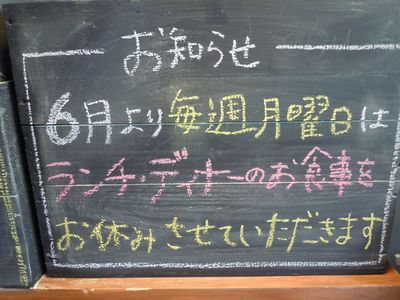 お知らせ
6月より毎週月曜日は
ランチ・ディナーのお食事を
お休みさせていただきます